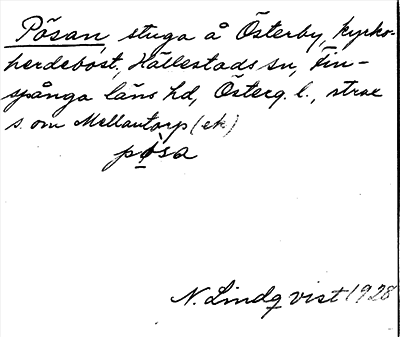 Pösan, stuga å Österby, kyrko-
herdebost., Hällestads sn, Fin-
spånga läns hd, Österg. l., strax
s. om Mellantorp (ek)
pọ̀sa
N. Lindqvist 1928